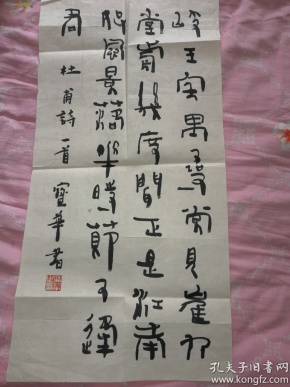 岐王宅里寻常见崔九
堂前几度闻正是江南
好风景落花时节又逢
君 杜甫詩一首 寶華書
孔夫子旧书网